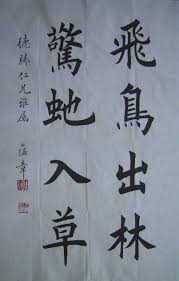 飛鳥出林
驚虵入草
德勝仁兄雅屬